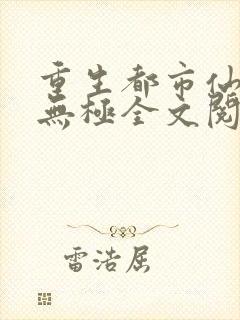 重生都市仙
無極全文閱
雷浩屈